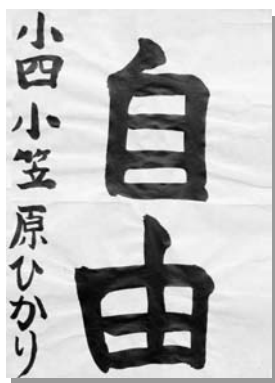 自由
小四 小笠原ひかり